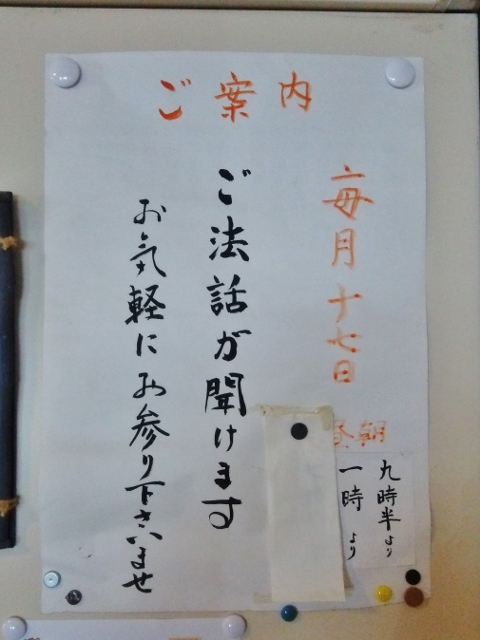 ご案内
毎月十七日
朝 九時半より
昼 一時より
ご法話が聞けます
お気軽にお参り下さいませ